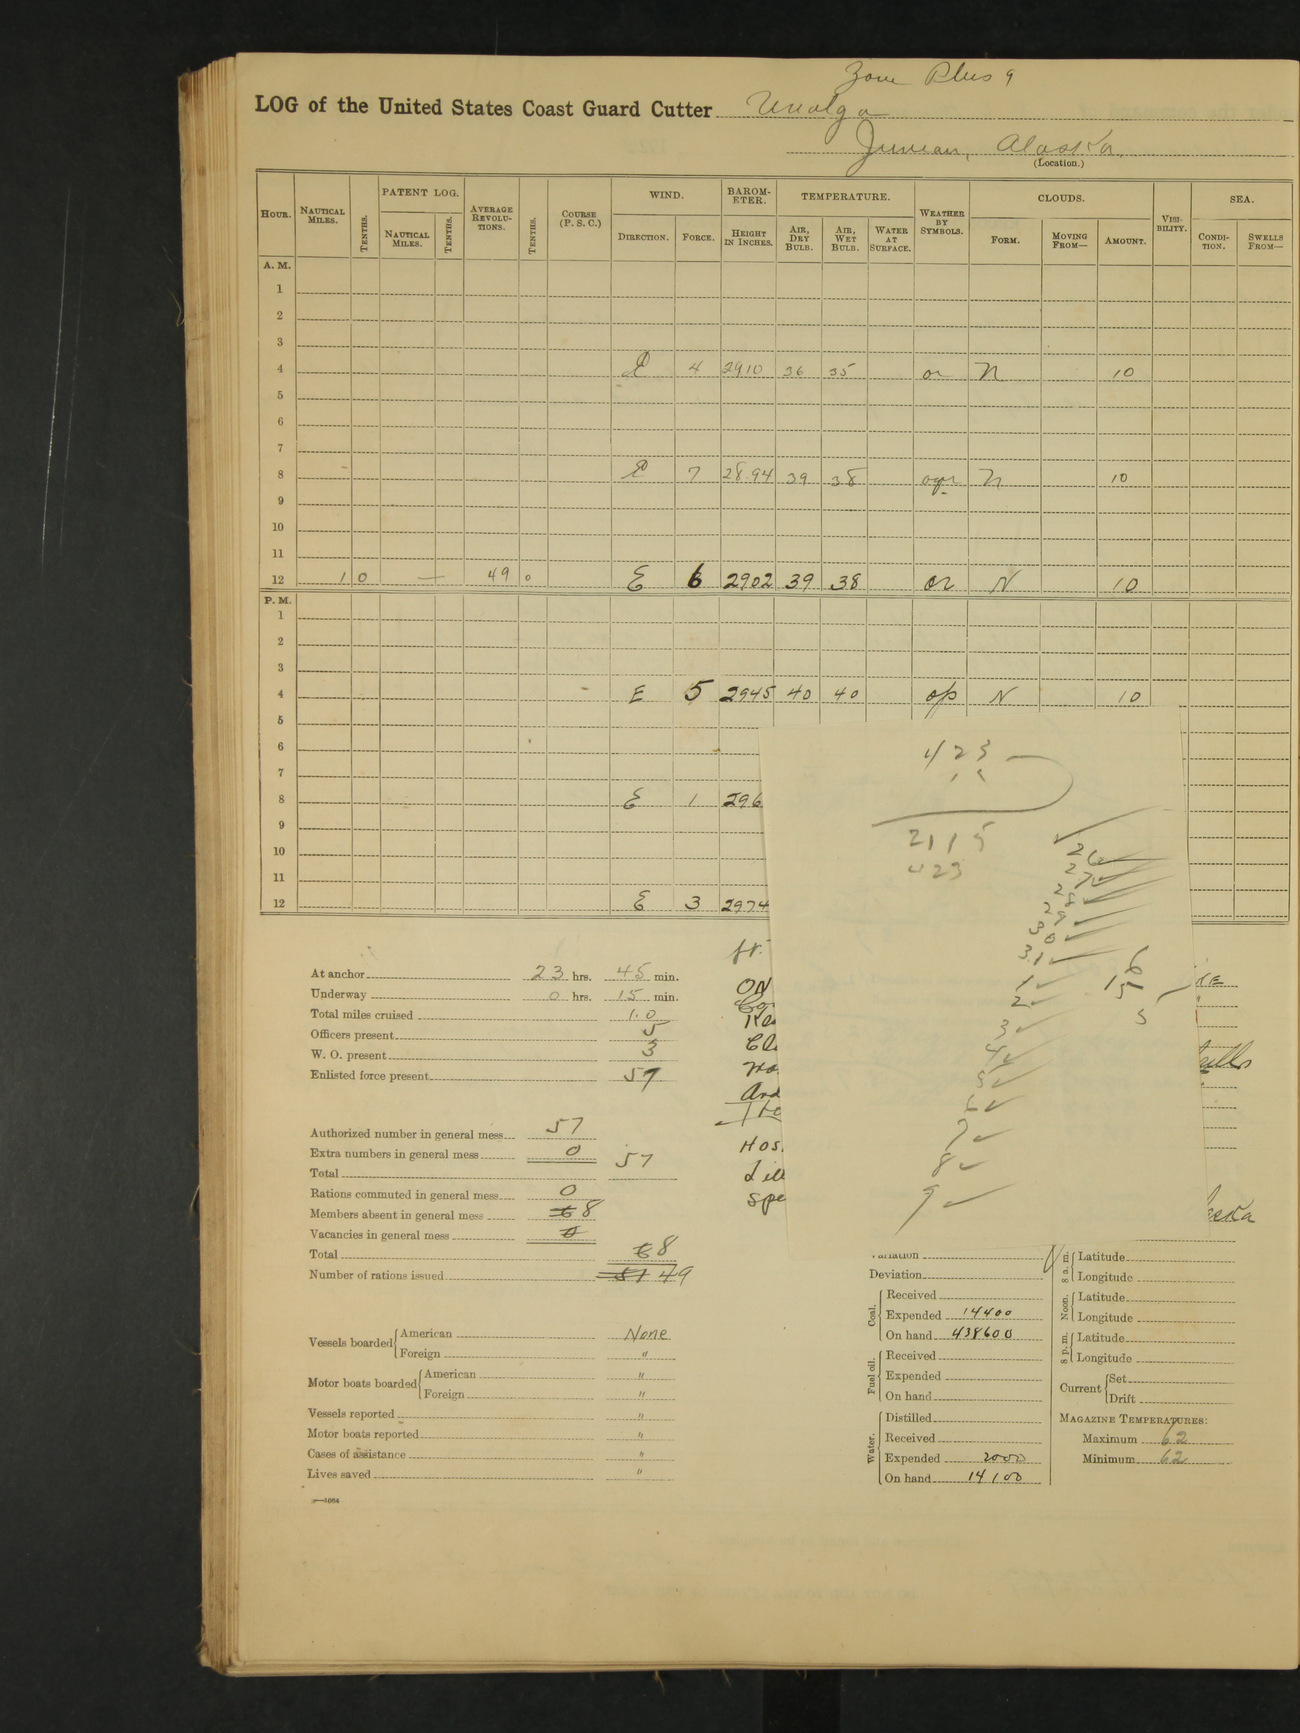 Zone Plus 9
LOG of the United States Coast Guard Cutter Unalga
Juneau, Alaska.
(Location.)
HOUR. NAUTICAL MILES. TENTHS. PATENT LOG. NAUTICAL MILES. TENTHS. AVERAGE REVOLUTIONS. TENTHS. COURSE (P. S. C.) WIND. DIRECTION. FORCE. BAROMETER. HEIGHT IN INCHES. TEMPERATURE. AIR, DRY BULB. AIR, WET BULB. WATER AT SURFACE. WEATHER BY SYMBOLS. CLOUDS. FORM. MOVING FROM— AMOUNT. VISIBILITY. SEA. CONDITION. SWELLS FROM—
A. M.
1
2
3
4 E 4 2910 36 35 or N 10
5
6
7
8 E 7 28.94 39 38 oqr N 10
9
10
11
12 1 0 — 49 0 E 6 2902 39 38 or N 10
P. M.
1
2
3
4 E 5 2945 40 40 op N 10
5
6
7
8 E 1 296
9
10
11
12 E 3 2974
423
2115
423
26
27
28
29
30
31
1
2
3
4
5
6
7
8
9
6
15
5
At anchor 23 hrs. 45 min.
Underway 0 hrs. 15 min.
Total miles cruised 1.0
Officers present 5
W. O. present 3
Enlisted force present 57
Authorized number in general mess 57
Extra numbers in general mess 0 57
Total
Rations commuted in general mess 0
Members absent in general mess 6 8
Vacancies in general mess 0
Total 6 8
Number of rations issued 51 49
ON
And
Hos.
Spe
Vessels boarded American None
Foreign "
Motor boats boarded American "
Foreign "
Vessels reported "
Motor boats reported "
Cases of assistance "
Lives saved "
Variation
Deviation
Coal. Received
Expended 14400
On hand 438600
Fuel oil. Received
Expended
On hand
Water. Distilled
Received
Expended 2000
On hand 14100
8 a. m. Latitude
Longitude
Noon. Latitude
Longitude
8 p. m. Latitude
Longitude
Current Set
Drift
MAGAZINE TEMPERATURES:
Maximum 62
Minimum 62